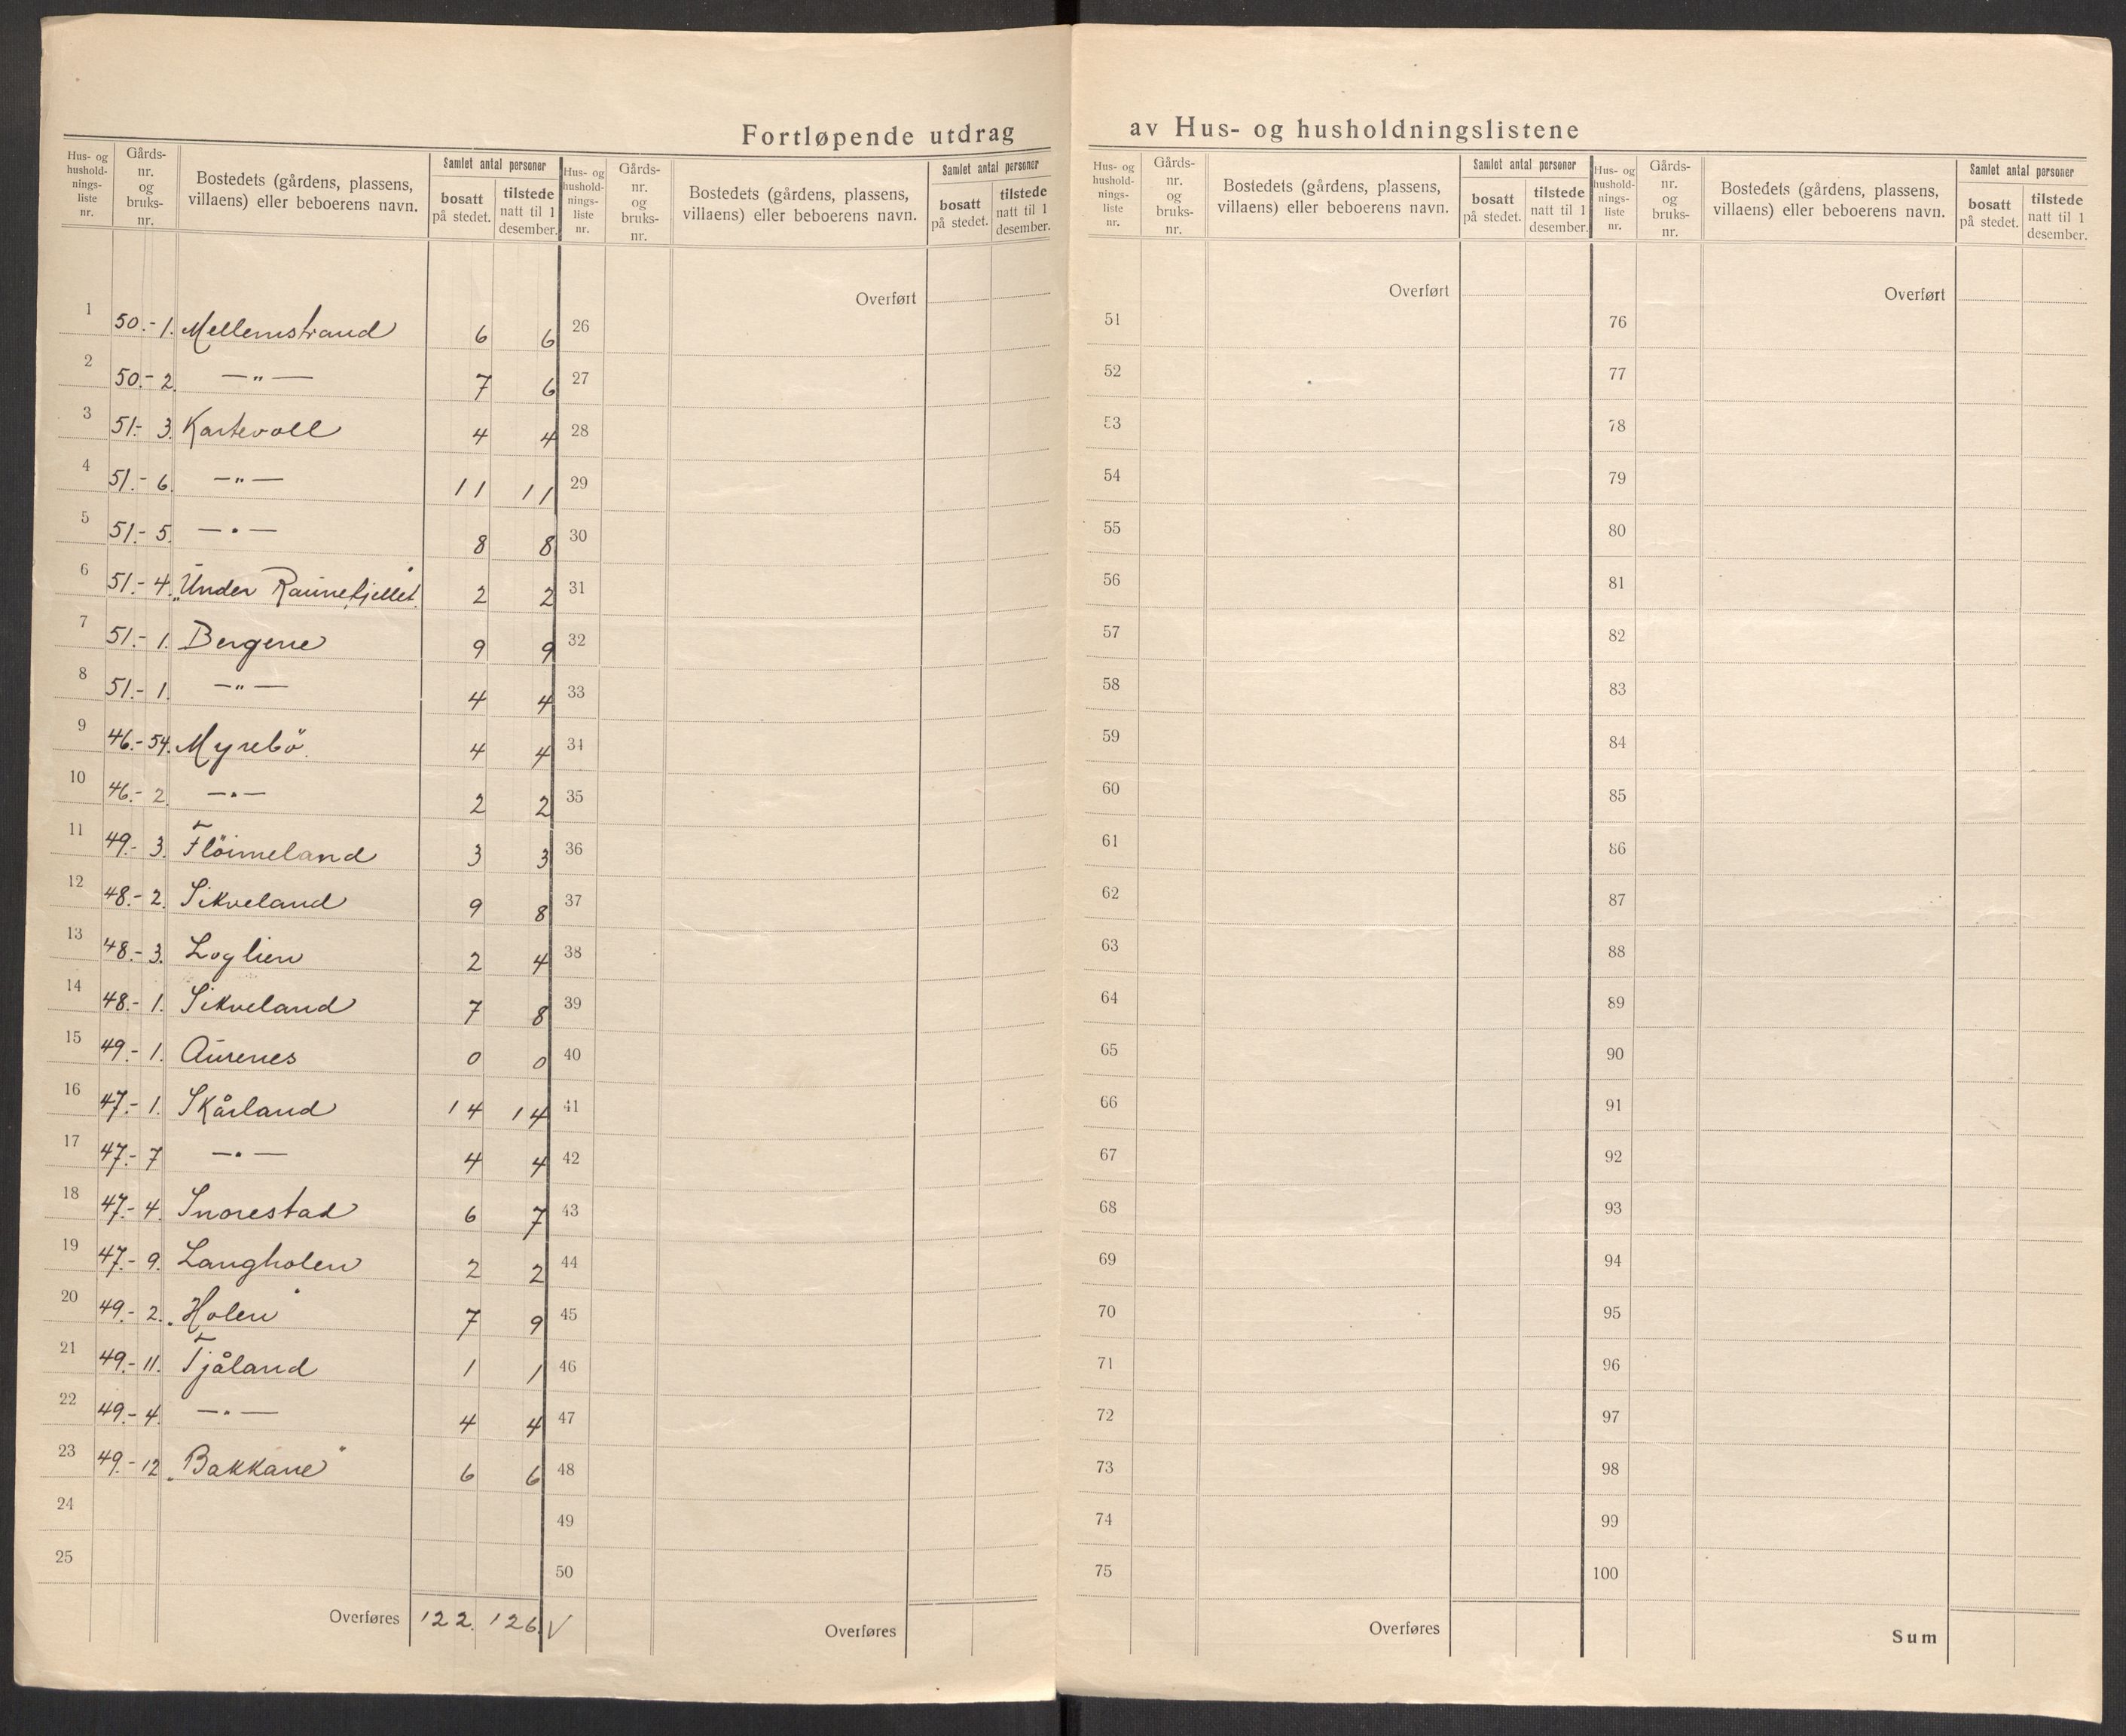 Fortløpende utdrag av Hus- og husholdningslistene
Hus- og husholdningsliste nr. | Gårds-nr. og bruks-nr. | Bostedets (gårdens, plassens, villaens) eller beboerens navn. | Samlet antal personer | bosatt på stedet. | tilstede natt til 1 desember.
1 50.-1. Mellemstrand 6 6
2 50.-2. —"— 7 6
3 51.-3. Kartevoll 4 4
4 51.-6. —"— 11 11
5 51.-5. —"— 8 8
6 51.-4. „Under Raunefjellet" 2 2
7 51.-1. Bergene 9 9
8 51.-1. —"— 4 4
9 46.-54. Myrebö. 4 4
10 46.-2. —"— 2 2
11 49.-3. Flöimeland 3 3
12 48.-2. Sikveland 9 8
13 48.-3. Loglien 2 4
14 48.-1. Sikveland 7 8
15 49.-1. Aurenes 0 0
16 47.-1. Skårland 14 14
17 47.-7 —"— 4 4
18 47.-4. Snorestad 6 7
19 47.-9. Langholen 2 2
20 49.-2. „Holen" 7 9
21 49.-11. Tjåland 1 1
22 49.-4. —"— 4 4
23 49.-12 „Bakkane" 6 6
24
25
Overføres 122. 126. V
Hus- og husholdningsliste nr. | Gårds-nr. og bruks-nr. | Bostedets (gårdens, plassens, villaens) eller beboerens navn. | Samlet antal personer | bosatt på stedet. | tilstede natt til 1 desember.
Overført
26
27
28
29
30
31
32
33
34
35
36
37
38
39
40
41
42
43
44
45
46
47
48
49
50
Overføres
Hus- og husholdningsliste nr. | Gårds-nr. og bruks-nr. | Bostedets (gårdens, plassens, villaens) eller beboerens navn. | Samlet antal personer | bosatt på stedet. | tilstede natt til 1 desember.
Overført
51
52
53
54
55
56
57
58
59
60
61
62
63
64
65
66
67
68
69
70
71
72
73
74
75
Overføres
Hus- og husholdningsliste nr. | Gårds-nr. og bruks-nr. | Bostedets (gårdens, plassens, villaens) eller beboerens navn. | Samlet antal personer | bosatt på stedet. | tilstede natt til 1 desember.
Overført
76
77
78
79
80
81
82
83
84
85
86
87
88
89
90
91
92
93
94
95
96
97
98
99
100
Sum